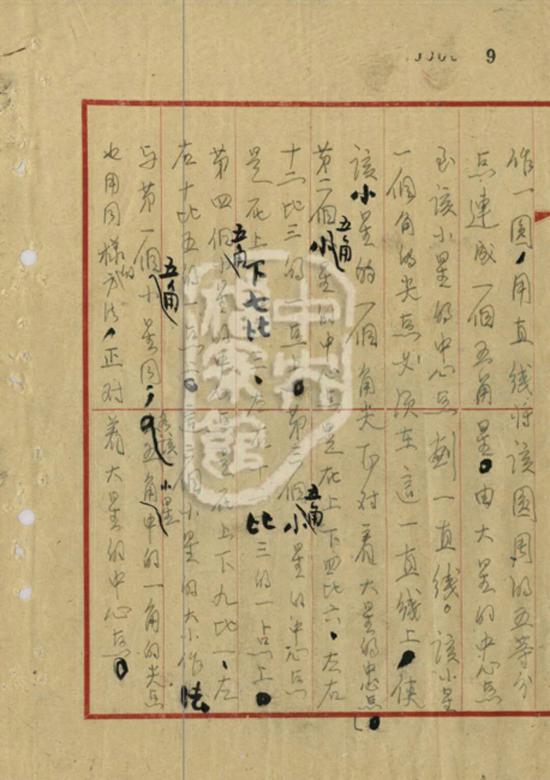 9
作一圆，用直线将该圆周的五等分
点連成一個五角星。由大星的中心点
至该小星的中心点劃一直线。该小星
一個角的尖点必须在這一直线上，使
该小星的一個角尖正对着大星的中心点。
第二個小五角星的中心点是在上下四比六、左右
十二比三的一点上。第三個小五角星的中心点
是在上五角下七比三、左右十一比三的一点上。
第四個小五角星的中心点是在上下九比一、左
右十比五的一点上。這三個小星的大小作法
与第一個小五角星同，各该小星五角中的一角的尖点
也用同樣的方法，正对着大星的中心点。
中央檔案館